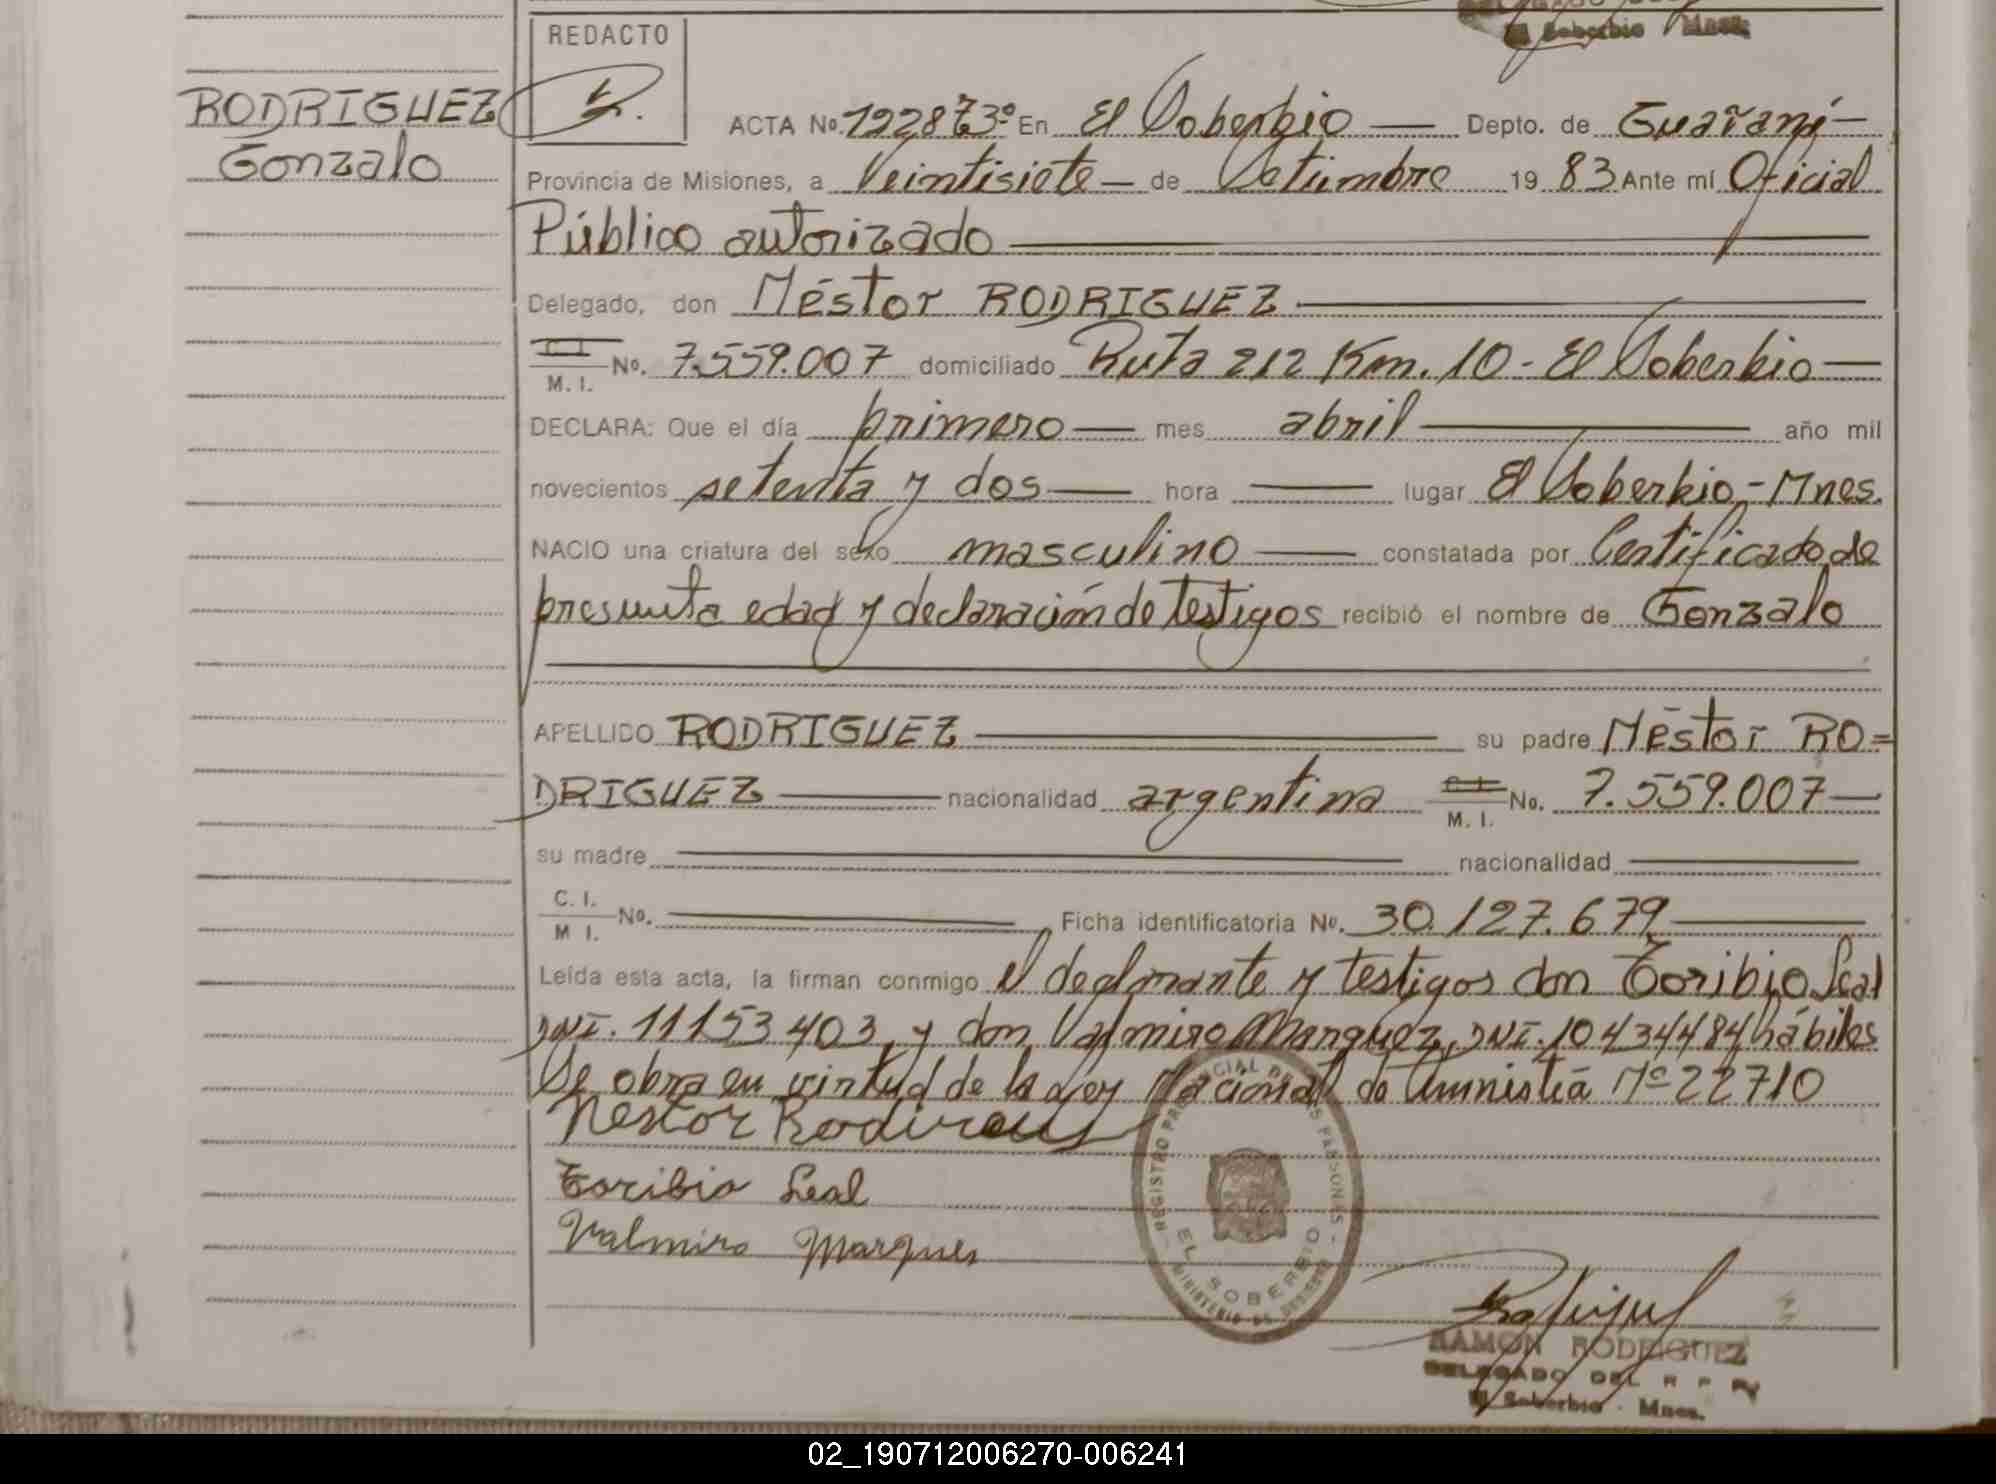 El Soberbio Mnes.
REDACTO
RODRIGUEZ
Gonzalo
ACTA No. En El Soberbio — Depto. de Guaraní —
Provincia de Misiones, a Veintisiete — de Setiembre 19 83 Ante mí Oficial
Público autorizado
Delegado, don Néstor RODRIGUEZ
C I
M. I. No. 7.559.007 domiciliado Ruta 212 Km. 10 - El Soberbio —
DECLARA: Que el día primero — mes abril — año mil
novecientos setenta y dos — hora — lugar El Soberbio - Mnes.
NACIO una criatura del sexo masculino — constatada por Certificado de
presunta edad y declaración de testigos recibió el nombre de Gonzalo
APELLIDO RODRIGUEZ — su padre Néstor RO=
DRIGUEZ — nacionalidad argentina C I
M. I. No. 7.559.007 —
su madre — nacionalidad —
C. I.
M I. No. — Ficha identificatoria No. 30.127.679 —
Leída esta acta, la firman conmigo el declarante y testigos don Toribio Leal
DNI. 11153403, y don Valmiro Marquez, DNI. 10434484 hábiles
Se obra en virtud de la Ley Nacional de Amnistía Nº 22710
Nestor
Toribio Leal
Valmiro Marques
REGISTRO PROVINCIAL DE LAS PERSONAS
EL SOBERBIO
MINISTERIO DE
RAMON RODRIGUEZ
DELEGADO DEL R P P
El Soberbio - Mnes.
02_190712006270-006241